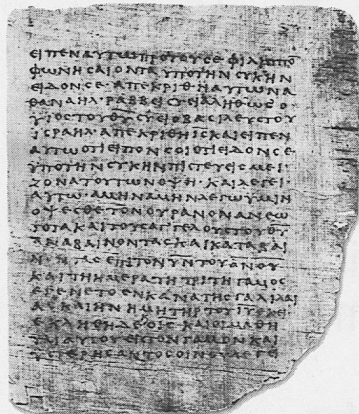 ΕΙΠΕΝ ΑΥΤΩ ΠΡΟ ΤΟΥ ΣΕ ΦΙΛΙΠΠΟ
ΦΩΝΗΣΑΙ ΟΝΤΑ ΥΠΟ ΤΗΝ ΣΥΚΗΝ
ΕΙΔΟΝ ΣΕ ΑΠΕΚΡΙΘΗ ΑΥΤΩ ΝΑ
ΘΑΝΑΗΛ ΡΑΒΒΕΙ ΣΥ ΕΙ ΑΛΗΘΩΣ Ο
ΥΙΟΣ ΤΟΥ ΘΥ ΣΥ ΕΙ Ο ΒΑΣΙΛΕΥΣ ΤΟΥ
ΙΣΡΑΗΛ ΑΠΕΚΡΙΘΗ ΙΣ ΚΑΙ ΕΙΠΕΝ
ΑΥΤΩ ΟΤΙ ΕΙΠΟΝ ΣΟΙ ΟΤΙ ΕΙΔΟΝ ΣΕ
ΥΠΟ ΤΗΝ ΣΥΚΗΝ ΠΙΣΤΕΥΕΙΣ ΜΕΙ
ΖΟΝΑ ΤΟΥΤΩΝ ΟΨΗ ΚΑΙ ΛΕΓΕΙ
ΑΥΤΩ ΑΜΗΝ ΑΜΗΝ ΛΕΓΩ ΥΜΙΝ
ΟΨΕΣΘΕ ΤΟΝ ΟΥΡΑΝΟΝ ΑΝΕΩ
ΓΟΤΑ ΚΑΙ ΤΟΥΣ ΑΓΓΕΛΟΥΣ ΤΟΥ ΘΥ
ΑΝΑΒΑΙΝΟΝΤΑΣ ΚΑΙ ΚΑΤΑΒΑΙ
ΝΟΝΤΑΣ ΕΠΙ ΤΟΝ ΥΝ ΤΟΥ ΑΝΟΥ
ΚΑΙ ΤΗ ΗΜΕΡΑ ΤΗ ΤΡΙΤΗ ΓΑΜΟΣ
ΕΓΕΝΕΤΟ ΕΝ ΚΑΝΑ ΤΗΣ ΓΑΛΙΛΑΙ
ΑΣ ΚΑΙ ΗΝ Η ΜΗΤΗΡ ΤΟΥ ΙΥ ΕΚΕΙ
ΕΚΛΗΘΗ ΔΕ Ο ΙΣ ΚΑΙ ΟΙ ΜΑΘΗ
ΤΑΙ ΑΥΤΟΥ ΕΙΣ ΤΟΝ ΓΑΜΟΝ ΚΑΙ
ΥΣΤΕΡΗΣΑΝΤΟΣ ΟΙΝΟΥ ΛΕΓΕΙ